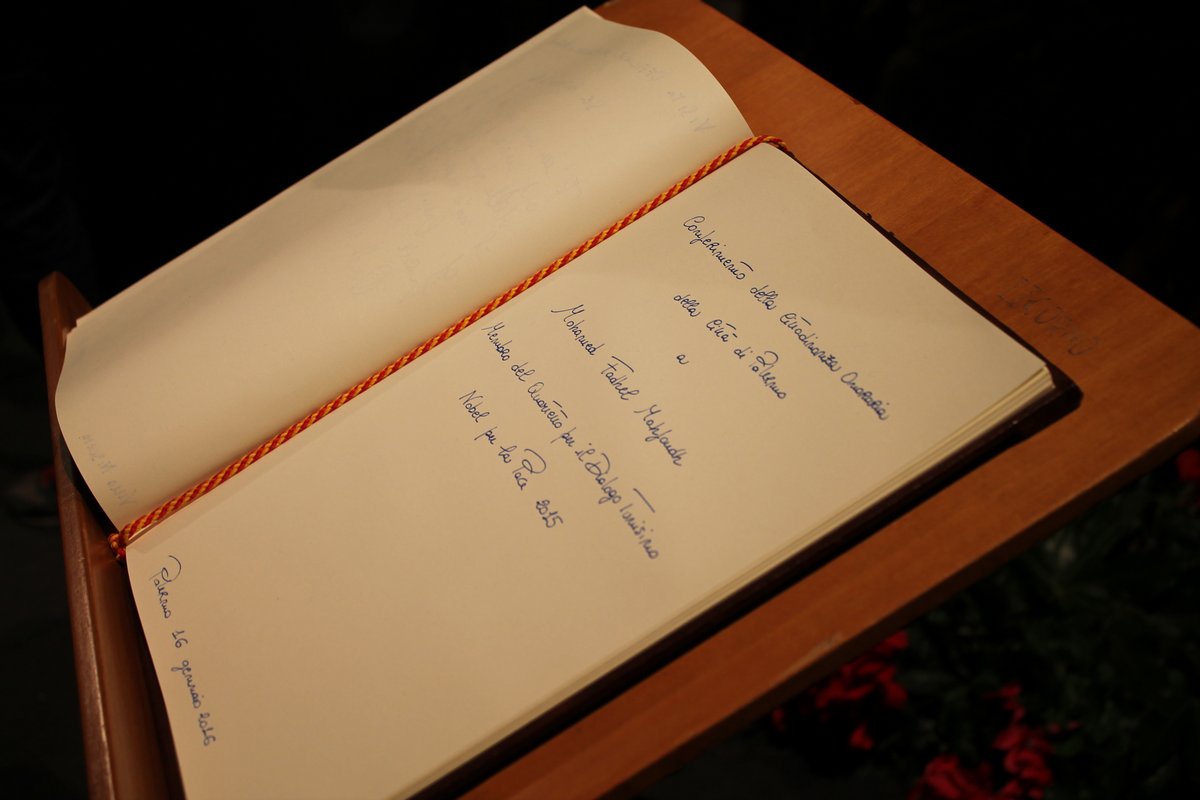 Conferimento della Cittadinanza Onoraria
della Città di Palermo
a
Mohamed Fadhel Mahfoudh
Membro del Quartetto per il Dialogo Tunisino
Nobel per la Pace 2015
Palermo 16 gennaio 2016